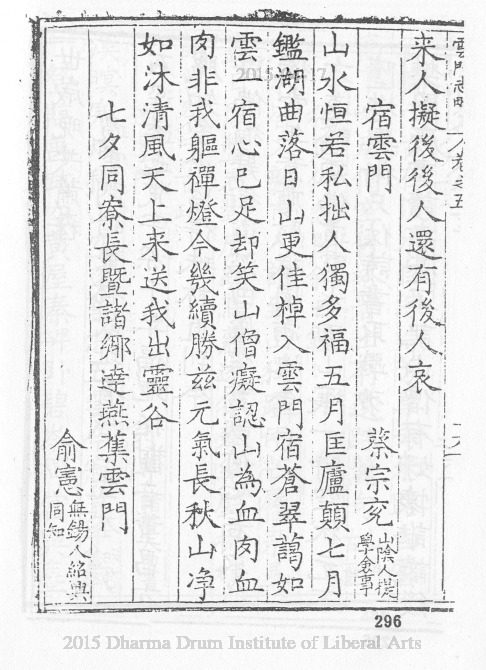 雲門志略 卷之五
来人擬後後人還有後人哀
宿雲門
蔡宗兗 山陰人提學僉事
山水恒若私拙人獨多福五月匡廬顛七月
鑑湖曲落日山更佳棹入雲門宿蒼翠藹如
雲宿心已足却笑山僧癡認山為血肉血
肉非我軀禪燈今幾續勝兹元氣長秋山净
如沐清風天上来送我出靈谷
七夕同寮長暨諸鄉達燕集雲門
俞憲 無錫人紹興同知
296
2015 Dharma Drum Institute of Liberal Arts